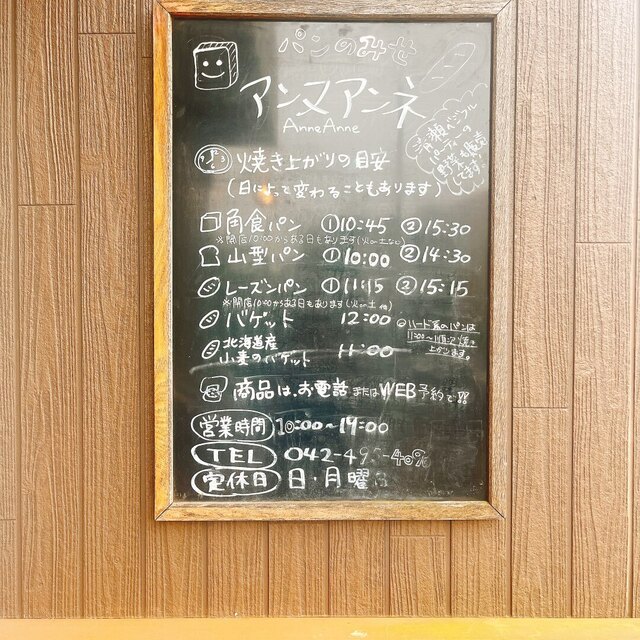 パンのみせ
アンヌアンネ
AnneAnne
清瀬ベジフル
パーティーの
野菜も販売
してます。
焼き上がりの目安
(日によって変わることもあります)
角食パン ①10:45 ②15:30
※開店10:00からある日もあります(火の土など)
山型パン ①10:00 ②14:30
レーズンパン ①11:15 ②15:15
※開店10:00からある日もあります(火の土他)
バゲット 12:00
北海道産
小麦のバゲット 11:00
ハード系のパンは
11:00~順次焼き
上がります。
商品は、お電話またはWEB予約で!!
営業時間 10:00~19:00
TEL 042-495-40
定休日 日・月曜日